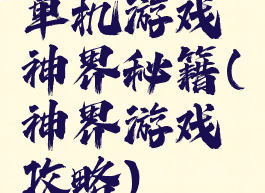 单机游戏
神界秘籍(
神界游戏
攻略)